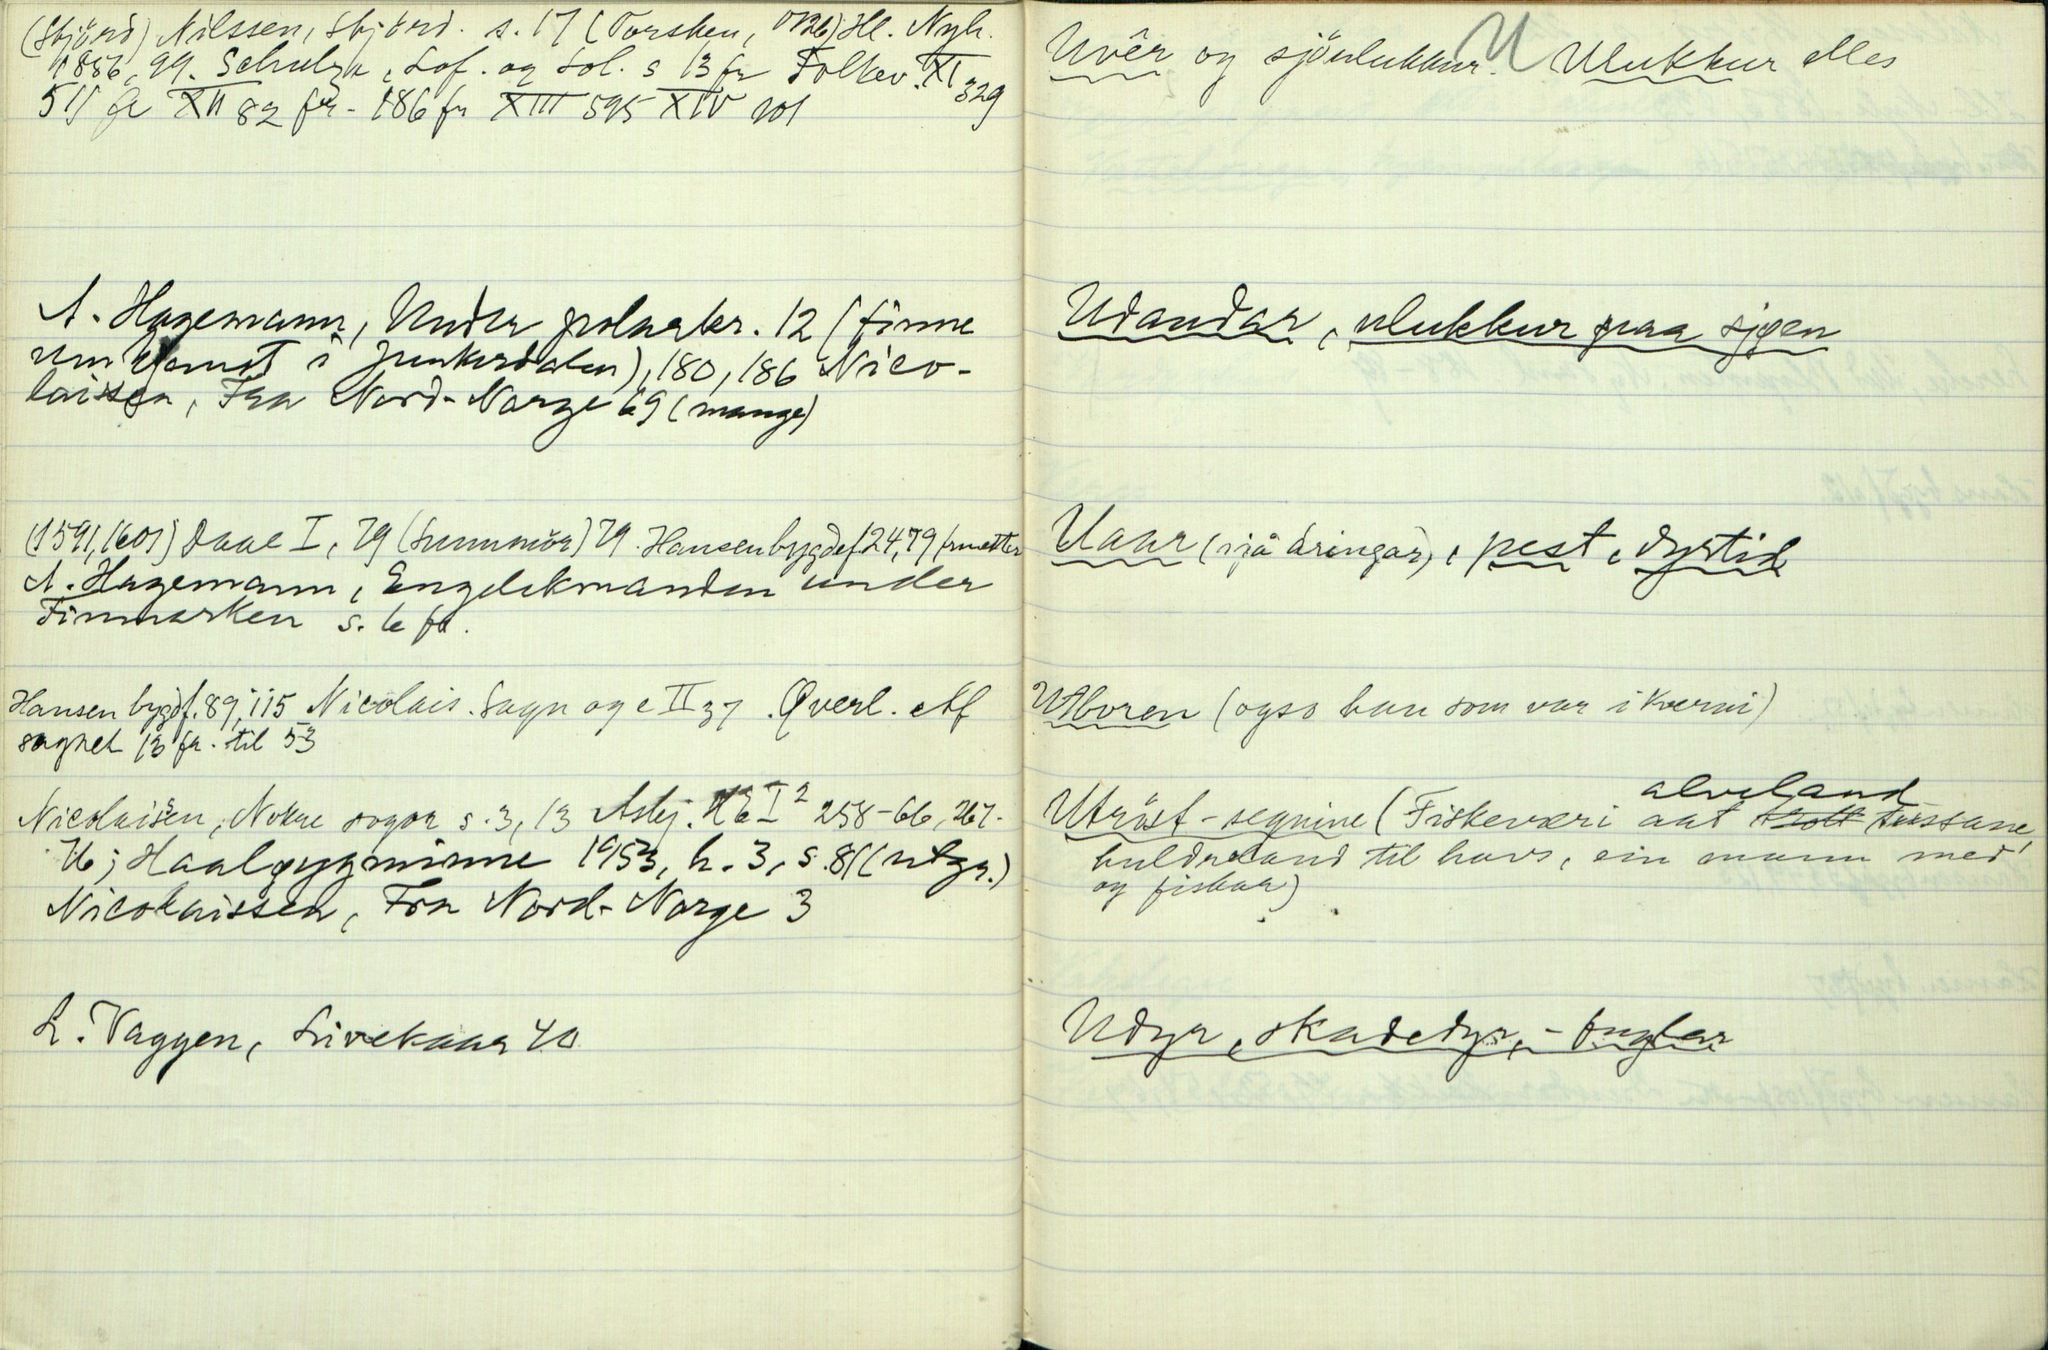 (Stjörd) Nilssen, Stjörd. s. 17 (Torsken, 1726) Hl. Nyh.
1856, 99. Schulze, Lof. og Sol. s 13 fr Folkev. XI 329
511 fr XII 82 fr - 186 fr XIII 595 XIV 101
A. Hagemann, Under polarkr. 12 (finne
umkomst i Junkerdalen), 180, 186 Nico-
laissen, Fra Nord-Norge 69 (mange)
(1591, 1601) Daae I, 79 (Sunnmör) 79. Hansen bygdef 24, 79
A. Hagemann, Engelskmanden under
Finmarken s. 6 fr.
Hansen bygdf. 89, 115 Nicolais. Sagn og e II 37. Qverl.
sagnet 13 fr. til 53
Nicolaissen, Nokre sogor s. 3, 13 Asbj. HE I 2 258-66, 267-
Haaløygminne 1953, h. 3, s. 81 (utgr.)
Nicolaissen, Fra Nord-Norge 3
L. Vaggen, Livekaar 40
U
Uvêr og sjöulukkur. Ulukkur elles
Udaudar, ulukkur paa sjøen
Uaar (sjå dringar), pest, dyrtid
Utburen (ogso han som var i kverni)
alveland
Utröst-segnine (Fiskeveri aat troll tussane,
huldreland til havs, ein mann med
og fiskar)
Udyr, skadedyr, - fuglar